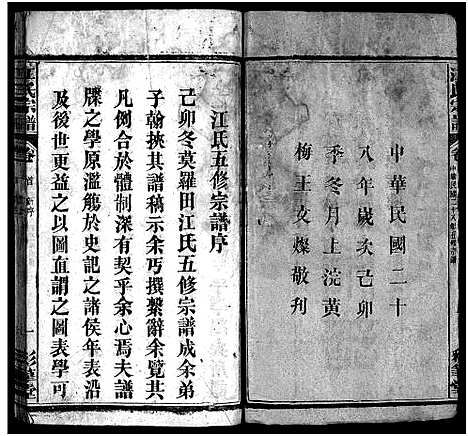 中華民國二十
八年歲次己卯
季冬月上浣黃
梅王文燦敬刊
江氏五修宗譜序
己卯冬莫羅田江氏五修宗譜成余弟
子翰挾其譜稿示余丐撰繫辭余覽其
凡例合於體制深有契乎余心焉夫譜
牒之學原濫觴於史記之諸侯年表沿
及後世更益之以圖直謂之圖表學可
江氏宗譜
卷首
新序
一